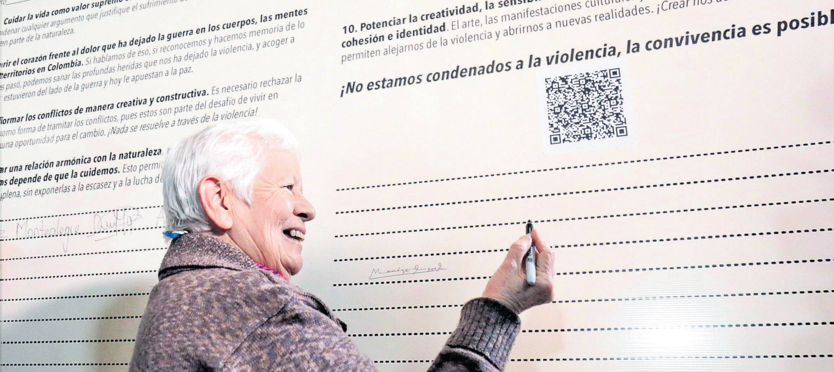 Cuidar la vida como valor supremo
cualquier argumento que justifique el sufrimiento
parte de la naturaleza.
el corazón frente al dolor que ha dejado la guerra en los cuerpos, las mentes
territorios en Colombia. Si hablamos de eso, si reconocemos y hacemos memoria de lo
pasó, podemos sanar las profundas heridas que nos ha dejado la violencia, y acoger a
estuvieron del lado de la guerra y hoy le apuestan a la paz.
los conflictos de manera creativa y constructiva. Es necesario rechazar la
como forma de tramitar los conflictos, pues estos son parte del desafío de vivir en
una oportunidad para el cambio. ¡Nada se resuelve a través de la violencia!
una relación armónica con la naturaleza
depende de que la cuidemos. Esto
plena, sin exponerlas a la escasez y a la lucha
10. Potenciar la creatividad, la
cohesión e identidad. El arte, las manifestaciones
permiten alejarnos de la violencia y abrirnos a nuevas realidades. ¡Crear nos
¡No estamos condenados a la violencia, la convivencia es